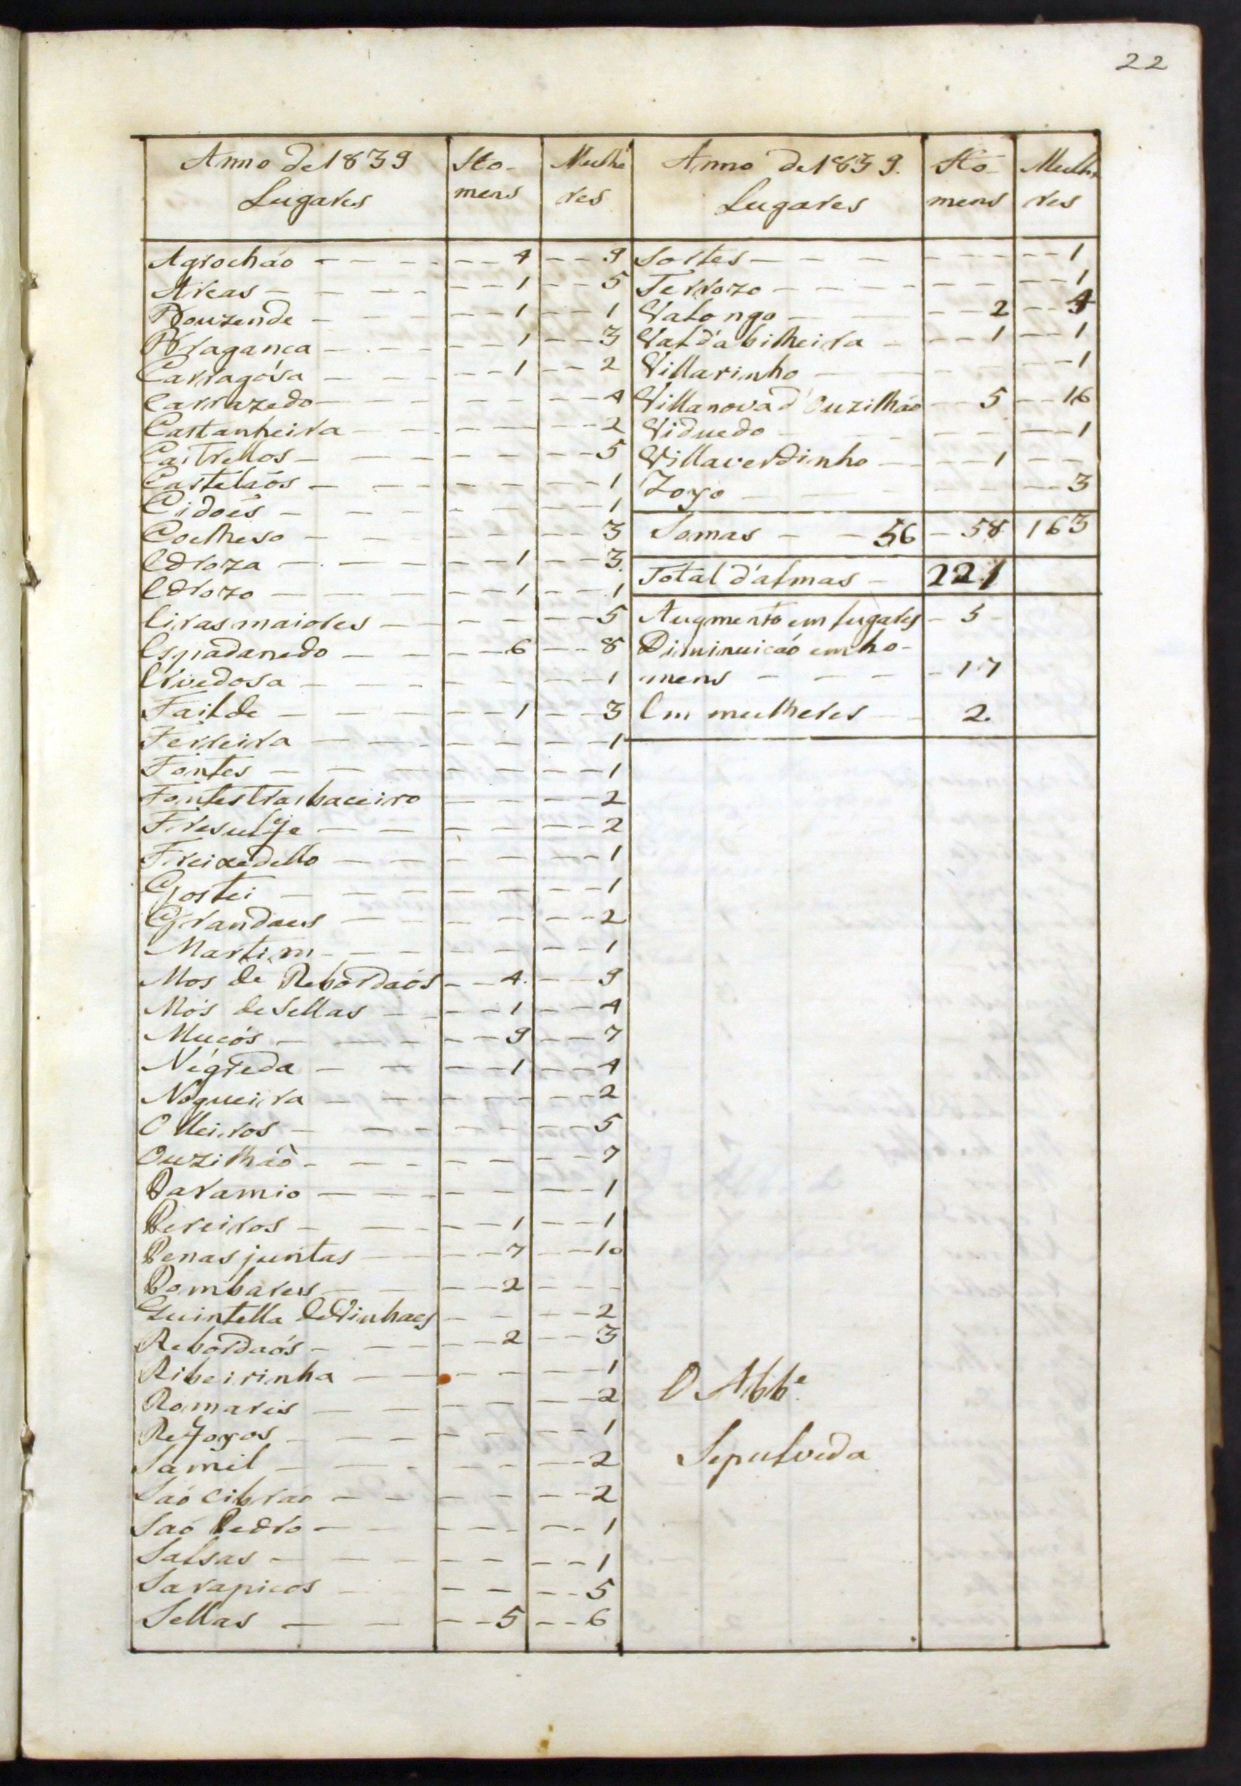 22
Anno de 1839 Lugares | Ho-mens | Mulhe res
Agrochão - - - - - - 4 - - 9
Areas - - - - - - 1 - - 5
Bouzende - - - - - 1 - - 1
Bragança - - - - - 1 - - 3
Carragósa - - - - - 1 - - 2
Carrazedo - - - - - - - 4
Castanheira - - - - - - - 2
Caitrellos - - - - - - - 5
Castélaós - - - - - - - 1
Cidoês - - - - - - - 1
Coelhoso - - - - - - - 3
Edroza - - - - - 1 - - 3
Edrozo - - - - - 1 - - 1
Eiras maiores - - - - - - 5
Espadanedo - - - - 6 - - 8
Ervedosa - - - - - - - 1
Failde - - - - - 1 - - 3
Ferreira - - - - - - - 1
Fontes - - - - - - - 1
Fontes Trasbaceiro - - - - - 2
Fresulfe - - - - - - - 2
Freixedello - - - - - - - 1
Gostei - - - - - - - 1
Grandaes - - - - - - - 2
Martim - - - - - - - 1
Mos de Rebordaós - - 4 - - 9
Mós de Sellas - - - - 1 - - 4
Mucós - - - - - 9 - - 7
Négreda - - - - 1 - - 4
Nogueira - - - - - - - 2
Olleiros - - - - - - - 5
Ouzilhaõ - - - - - - - 7
Paramio - - - - - - - 1
Pereiros - - - - 1 - - 1
Penas juntas - - - - 7 - - 10
Pombares - - - 2 - - -
Quintella de Vinhaes - - - - 2
Rebordaós - - - - 2 - - 3
Ribeirinha - - - - - - - 1
Romaris - - - - - - - 2
Refoyos - - - - - - - 1
Samil - - - - - - - 2
Saó Cibrao - - - - - - - 2
Saó Pedro - - - - - - - 1
Salsas - - - - - - - 1
Sarapicos - - - - - - 5
Sellas - - - - - 5 - - 6
Anno de 1839. Lugares | Ho-mens | Mulhe res
Sortes - - - - - - - 1
Terrozo - - - - - - - 1
Valongo - - - - 2 - - 4
Val d'abilheira - - - 1 - - 1
Villarinho - - - - - - 1
Villanova d'Ouzilhão - - 5 - - 16
Viduedo - - - - - - 1
Villaverdinho - - - 1 - -
Zoyo - - - - - - 3
Somas - - 56 - 58 163
Total d'almas - 221
Augmento em lugares - 5
Diminuicaó em ho-
mens - - - - 17
Em mulheres - - 2.
O Abb.e
Sepulveda